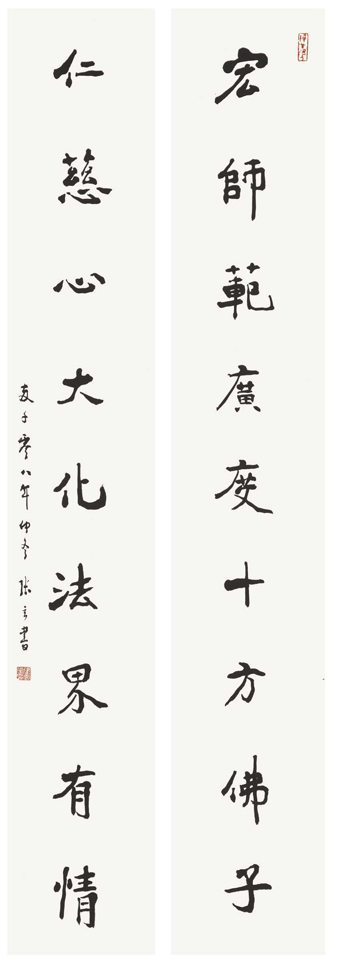 宏師範廣度十方佛子
仁慈心大化法界有情
貳千零八年仲冬 張章書